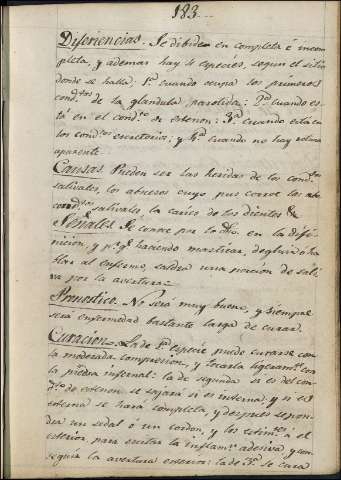 183
Diferiencias. Se dibiden en completa é incom
pleta, y ademas hay 4 especies, segun el sitio
donde se halla: 1ª cuando ocupa los primeros
condᵗᵒˢ de la glandula parotida: 2ª cuando es
tá en el condᵗᵒ de estenon: 3ª cuando está en
los condᵗᵒˢ escretorios: y 4ª cuando no hay rotura
aparente.
Causas. Pueden ser las heridas de los condᵗᵒˢ
salivales, los abscesos cuyo pus corroe los
condᵗᵒˢ salivales la caries de los dientes &
Señales. Se conoce por lo dho. en la difi
nicion, y p.r q.e haciendo masticar, deglutir ó ha
blar al enfermo, saldrá una porcion de sali
va por la avertura.
Pronostico. No será muy bueno, y siempre
será enfermedad bastante larga de curar.
Curacion. La de 1ª especie puede curarse con
la moderada compresion, y tocarla ligeramᵗᵉ con
la piedra infernal: la de segunda si es del con
dᵗᵒ de estenon se sajará si es interna, y si es
esterna se hará completa, y despues se pon
drá un sedal ó un cordon, y los estimᵗᵉˢ á el
esterior para evitar la inflamⁿ adesiva y con
seguir la avertura esterior: la de 3ª se cura